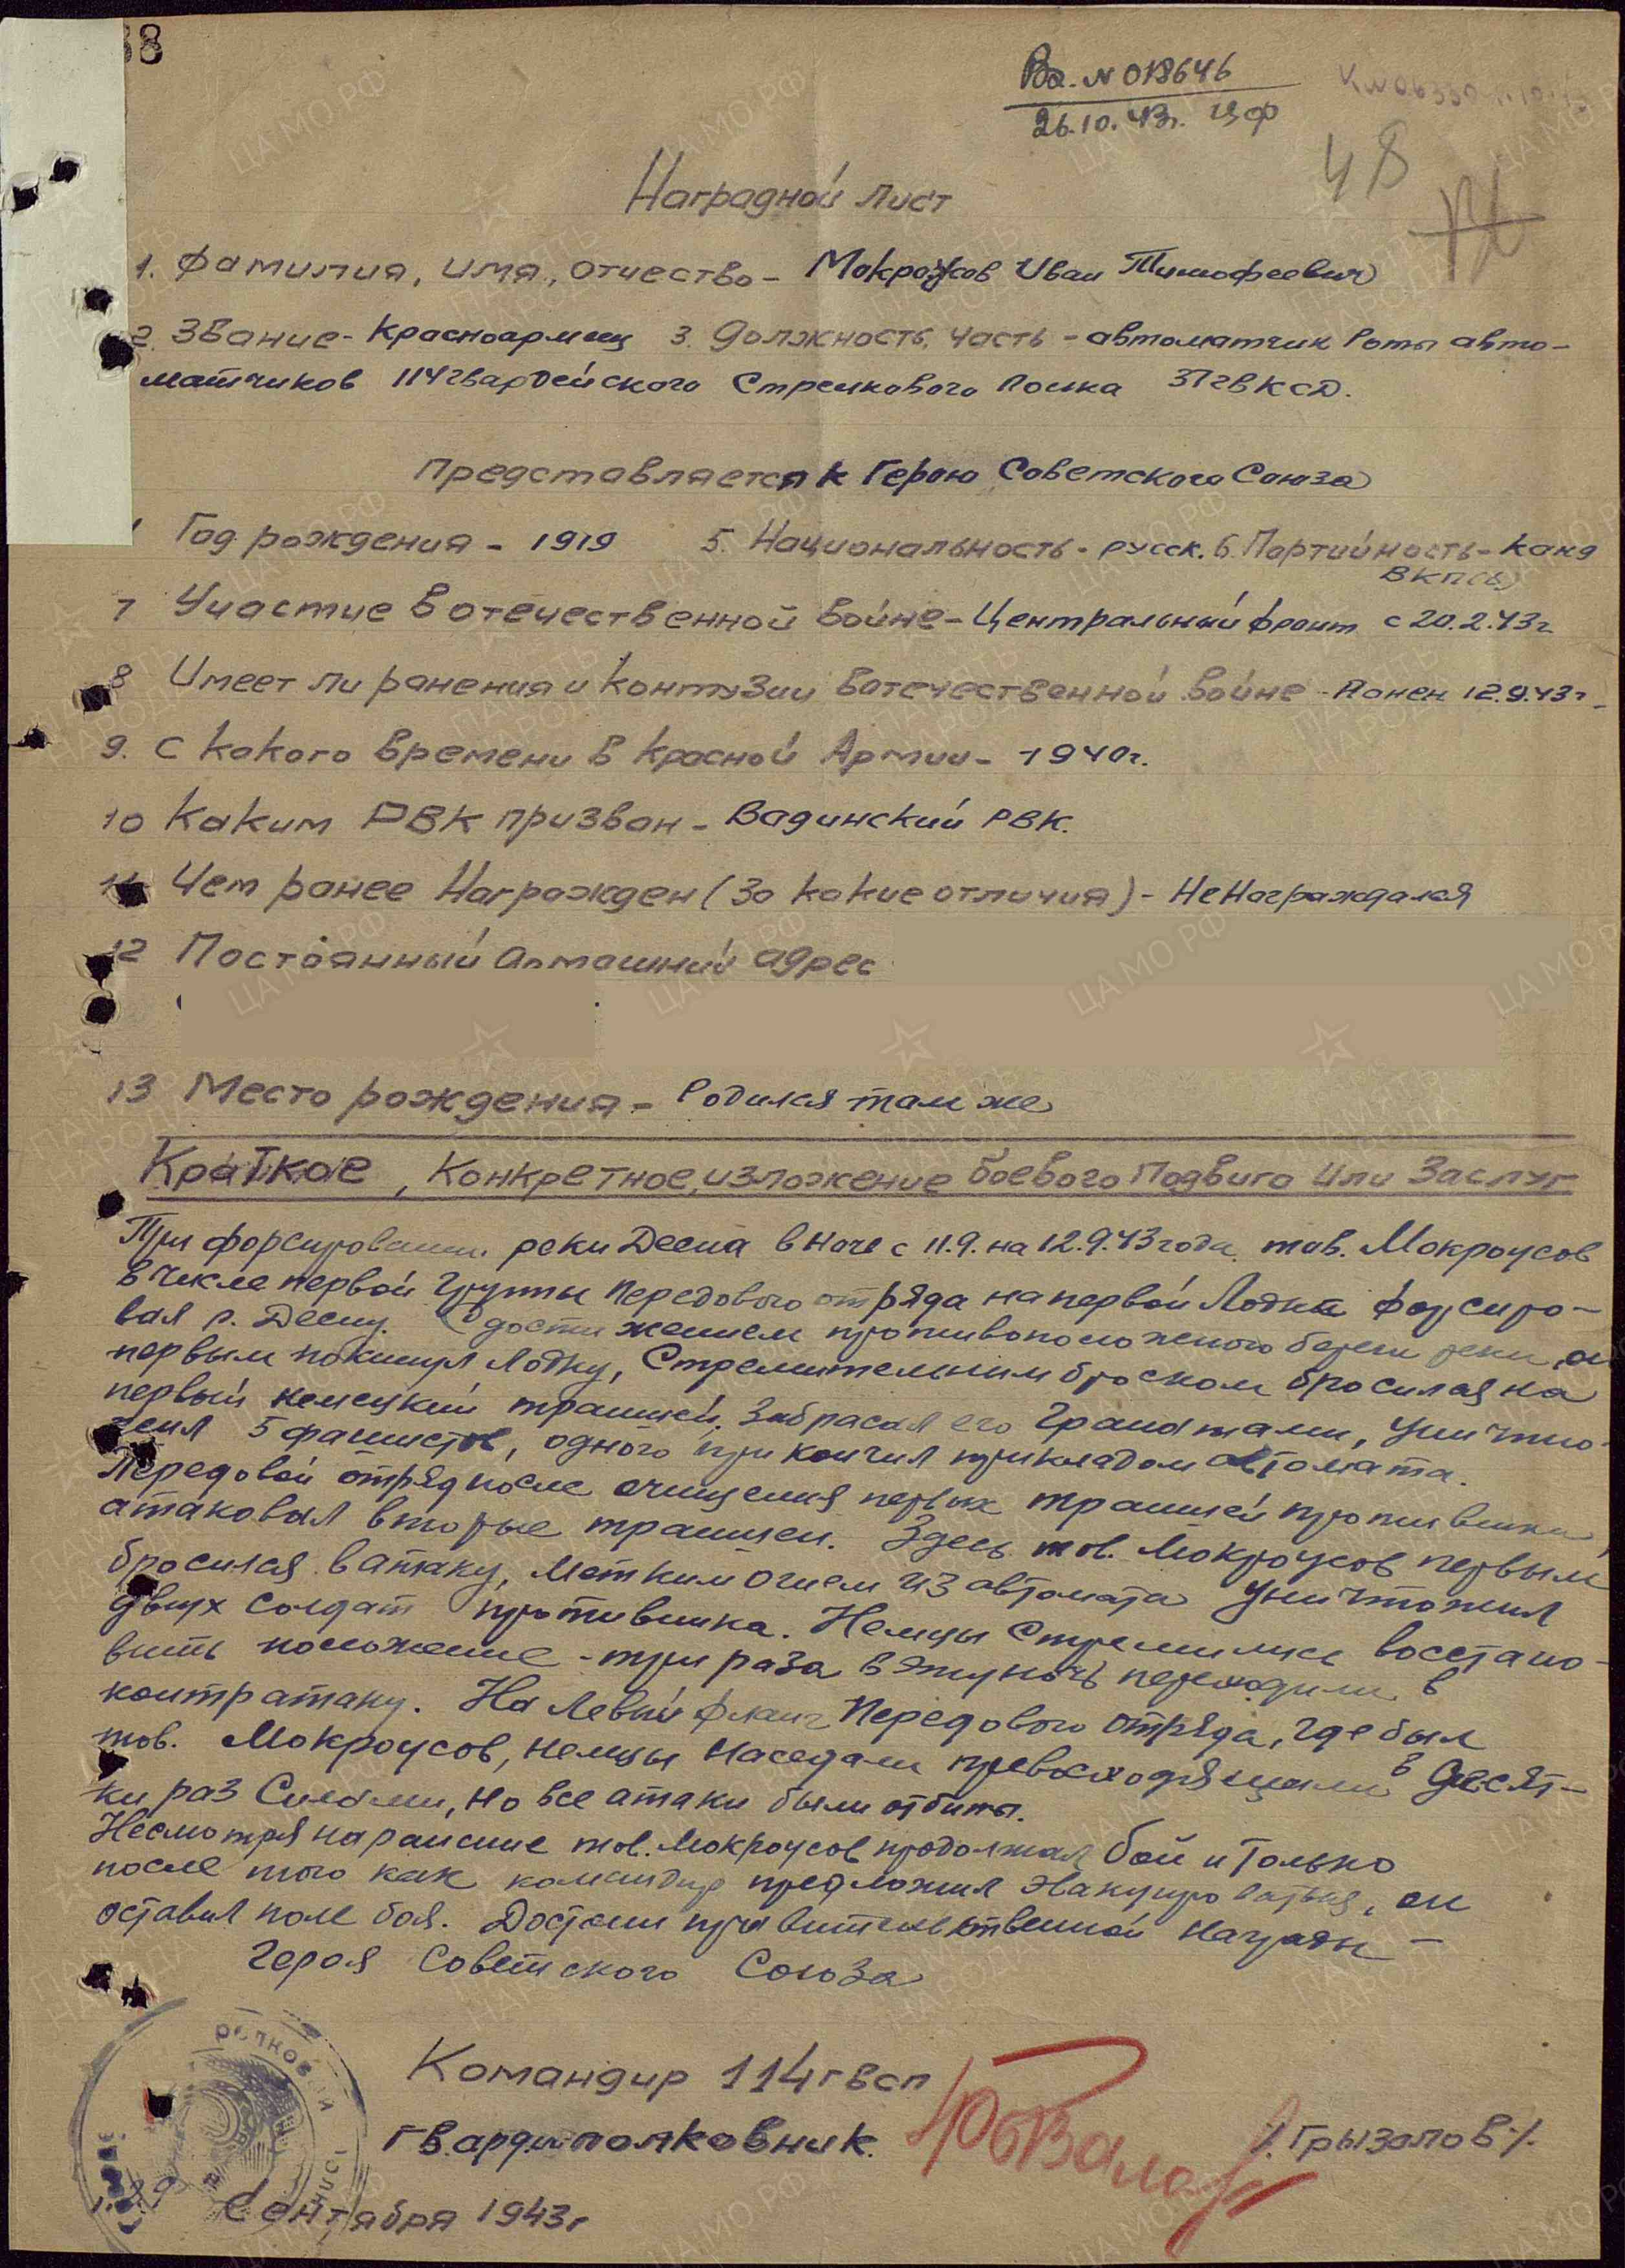 38
Вх. № 018646
26.10.43г. ЦФ
48
Наградной лист
1. Фамилия, имя, отчество - Мокроусов Иван Тимофеевич
2. Звание - Красноармеец 3. Должность, часть - автоматчик роты авто-
матчиков 114 гвардейского Стрелкового полка 37 гвКсД.
Представляется к Герою Советского Союза
Год рождения - 1919 5. Национальность - русск. 6. Партийность - Канд
ВКП(б)
7 Участие в отечественной войне - Центральный фронт с 20.2.43г
8 Имеет ли ранения и контузии в отечественной войне - Ранен 12.9.43г.
9. С какого времени в Красной Армии - 1940г.
10 Каким РВК призван - Вадинский РВК.
11 Чем ранее Награжден (За какие отличия) - Не Награждался
12 Постоянный домашний адрес
13 Место рождения - Родился там же
Краткое, Конкретное, изложение боевого Подвига Или Заслуг
При форсировании реки Десна в ночь с 11.9. на 12.9.43 года тов. Мокроусов
в числе первой группы Передового отряда на первой Лодке форсиро-
вал р. Десну. С достижением противоположного берега реки, он
первым покинул Лодку, Стремительным броском бросился на
первый немецкий траншей. Забрасал его Гранатами, уничто-
жил 5 фашистов, одного прикончил прикладом автомата.
Передовой отряд после очищения первых траншей противника
атаковал вторые траншеи. Здесь тов. Мокроусов первым
бросился в атаку, метким огнем из автомата уничтожил
двух солдат противника. Немцы Стремились восстано-
вить положение - три раза в эту ночь переходили в
контратаку. На Левый фланг Передового отряда, где был
тов. Мокроусов, немцы наседали превосходящими в десят-
ки раз Силами, но все атаки были отбиты.
Несмотря на ранение тов. Мокроусов продолжал бой и только
после того как командир предложил эвакуироваться, он
оставил поле боя. Достоин правительственной награды -
Героя Советского Союза
Командир 114 гвсп
гвардии полковник.
/. Грызалов ./.
Сентября 1943г